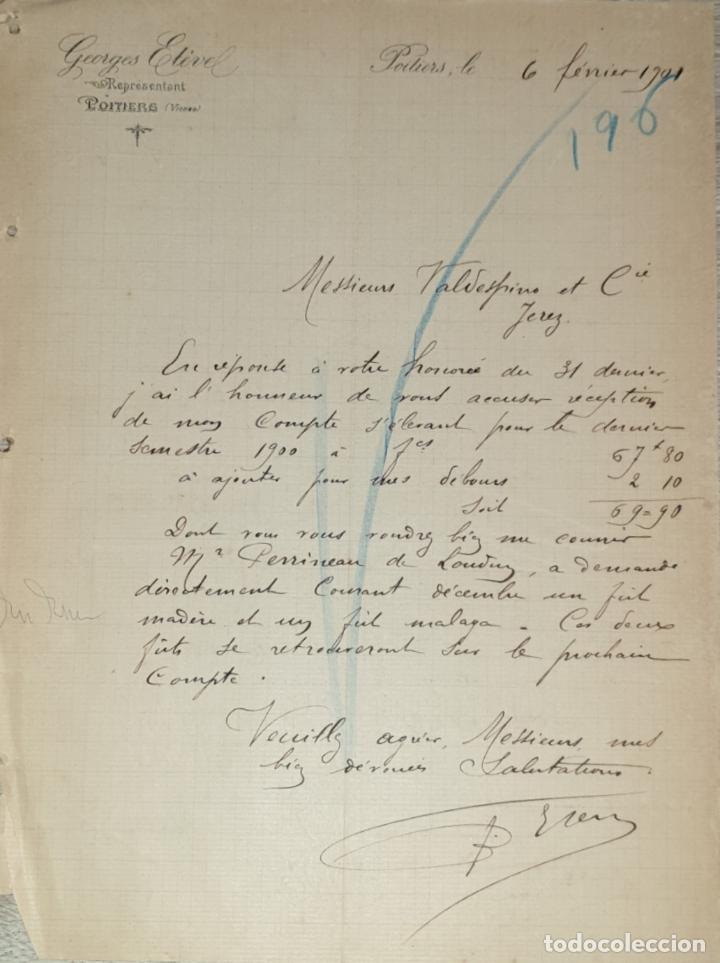 Georges Etève
Représentant
POITIERS (Vienne)
Poitiers, le 6 février 1901
196
Messieurs Valdespino et Cie
Jerez.
En réponse à votre honorée du 31 dernier,
j'ai l'honneur de vous accuser réception
de mon Compte s'élevant pour le dernier
semestre 1900 à fcs 67f 80
à ajouter pour mes débours 2 10
Soit 69=90
Dont vous voudrez bien me couvrir
Mr Perrineau de Loudun, a demandé
directement Courant décembre un fût
madère et un fût malaga. Ces deux
fûts se retrouveront sur le prochain
Compte.
Veuillez agréer, Messieurs, mes
bien dévoués Salutations.
todocoleccion